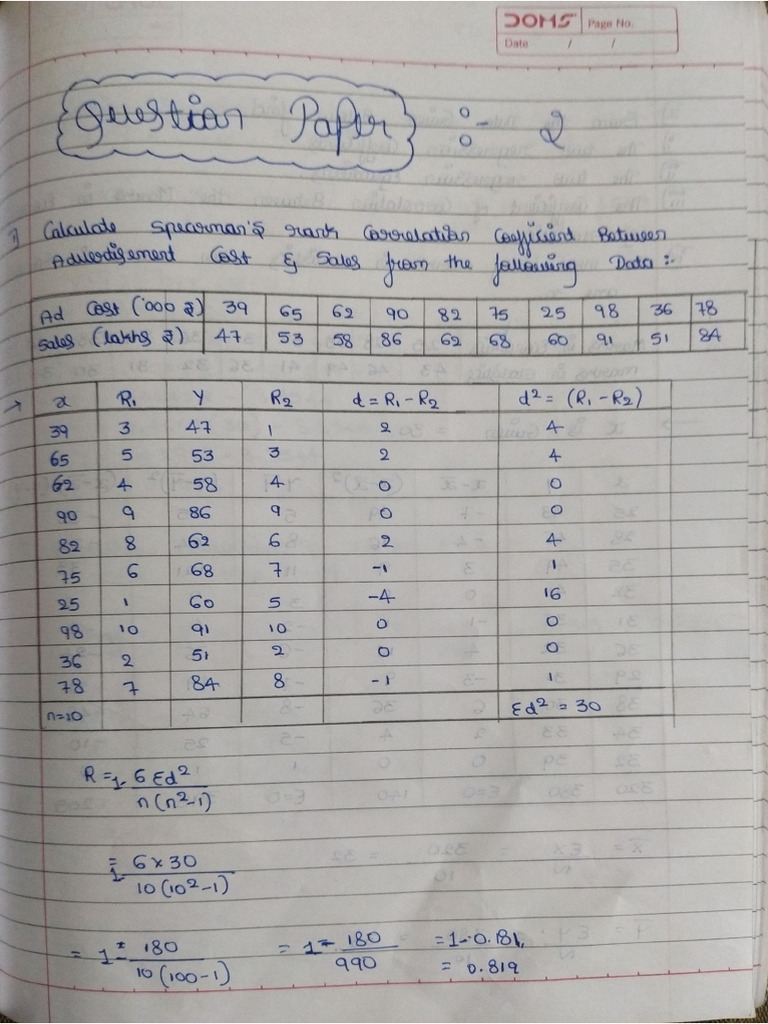 DOMS Page No.
Date / /
Question Paper :- 2
1) Calculate Specorman's rank Correlation Coefficient Between
Advertisement Cost & Sales from the following Data :-
Ad Cost ('000 ₹) 39 65 62 90 82 75 25 98 36 78
Sales (lakhs ₹) 47 53 58 86 62 68 60 91 51 84
→ x R1 Y R2 d = R1 - R2 d² = (R1 - R2)
39 3 47 1 2 4
65 5 53 3 2 4
62 4 58 4 0 0
90 9 86 9 0 0
82 8 62 6 2 4
75 6 68 7 -1 1
25 1 60 5 -4 16
98 10 91 10 0 0
36 2 51 2 0 0
78 7 84 8 -1 1
n=10 Ɛd² = 30
R = 1- 6 Ɛd² / n(n²-1)
= 1- 6 × 30 / 10(10²-1)
= 1- 180 / 10(100-1) = 1- 180 / 990 = 1-0.181
= 0.819